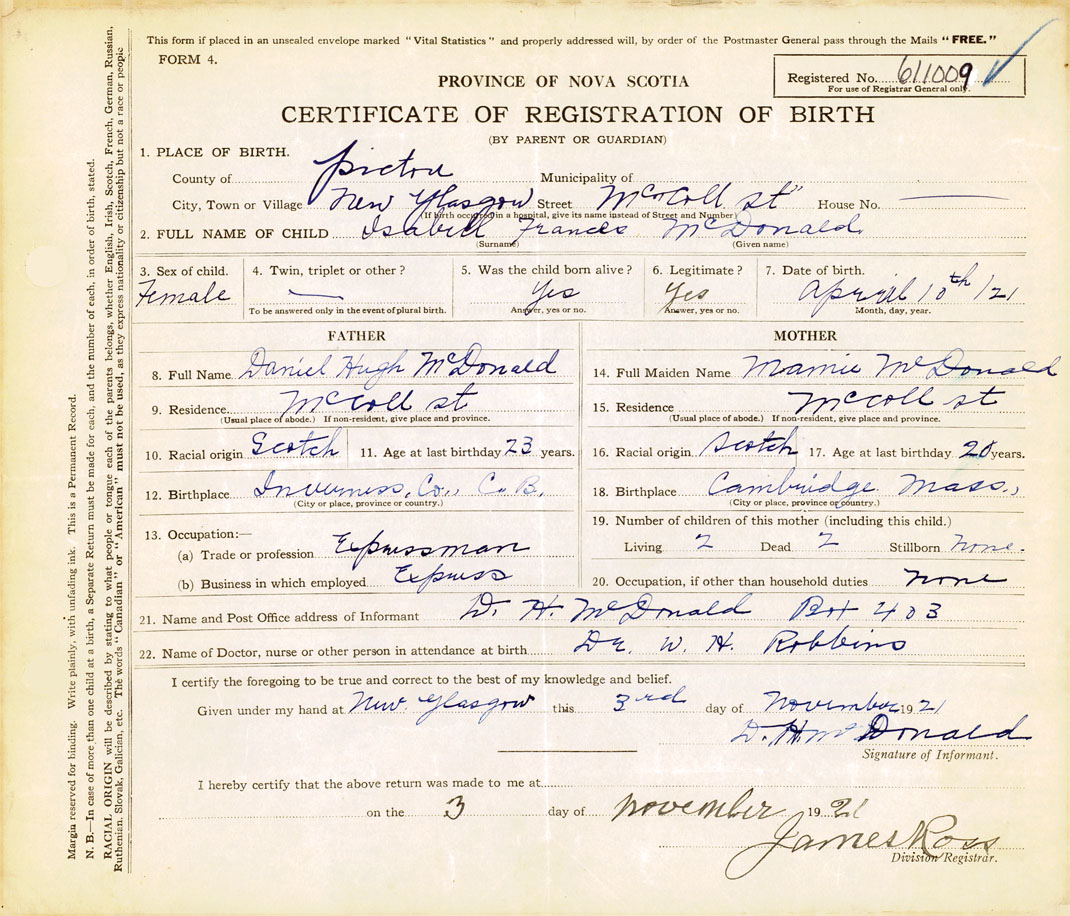 This form if placed in an unsealed envelope marked "Vital Statistics" and properly addressed will, by order of the Postmaster General pass through the Mails "FREE."
FORM 4.
Registered No. 611009
For use of Registrar General only.
PROVINCE OF NOVA SCOTIA
CERTIFICATE OF REGISTRATION OF BIRTH
(BY PARENT OR GUARDIAN)
1. PLACE OF BIRTH.
County of Pictou Municipality of
City, Town or Village New Glasgow Street McColl St House No. —
(If birth occurred in a hospital, give its name instead of Street and Number)
2. FULL NAME OF CHILD Isabell Frances McDonald
(Surname) (Given name)
3. Sex of child. 4. Twin, triplet or other? 5. Was the child born alive? 6. Legitimate? 7. Date of birth.
Female — Yes Yes April 10th/21
To be answered only in the event of plural birth. Answer, yes or no. Answer, yes or no. Month, day, year.
FATHER
8. Full Name Daniel Hugh McDonald
9. Residence. McColl st
(Usual place of abode.) If non-resident, give place and province.
10. Racial origin Scotch 11. Age at last birthday 23 years.
12. Birthplace Inverness, Co., C.B.
(City or place, province or country.)
13. Occupation:—
(a) Trade or profession Expressman
(b) Business in which employed Express
MOTHER
14. Full Maiden Name Mamie McDonald
15. Residence McColl st
(Usual place of abode.) If non-resident, give place and province.
16. Racial origin Scotch 17. Age at last birthday 20 years.
18. Birthplace Cambridge Mass.,
(City or place, province or country.)
19. Number of children of this mother (including this child.)
Living 2 Dead 2 Stillborn None.
20. Occupation, if other than household duties None
21. Name and Post Office address of Informant D. H. McDonald Box 403
22. Name of Doctor, nurse or other person in attendance at birth Dr. W. H. Robbins
I certify the foregoing to be true and correct to the best of my knowledge and belief.
Given under my hand at New Glasgow this 3rd day of November 1921
D. H. McDonald
Signature of Informant.
I hereby certify that the above return was made to me at
on the 3 day of November 1921
James Ross
Division Registrar.
Margin reserved for binding. Write plainly, with unfading ink. This is a Permanent Record.
N. B.—In case of more than one child at a birth, a Separate Return must be made for each, and the number of each, in order of birth, stated.
RACIAL ORIGIN will be described by stating to what people or tongue each of the parents belongs, whether English, Irish, Scotch, French, German, Russian,
Ruthenian, Slovak, Galician, etc. The words "Canadian" or "American" must not be used, as they express nationality or citizenship but not a race or people